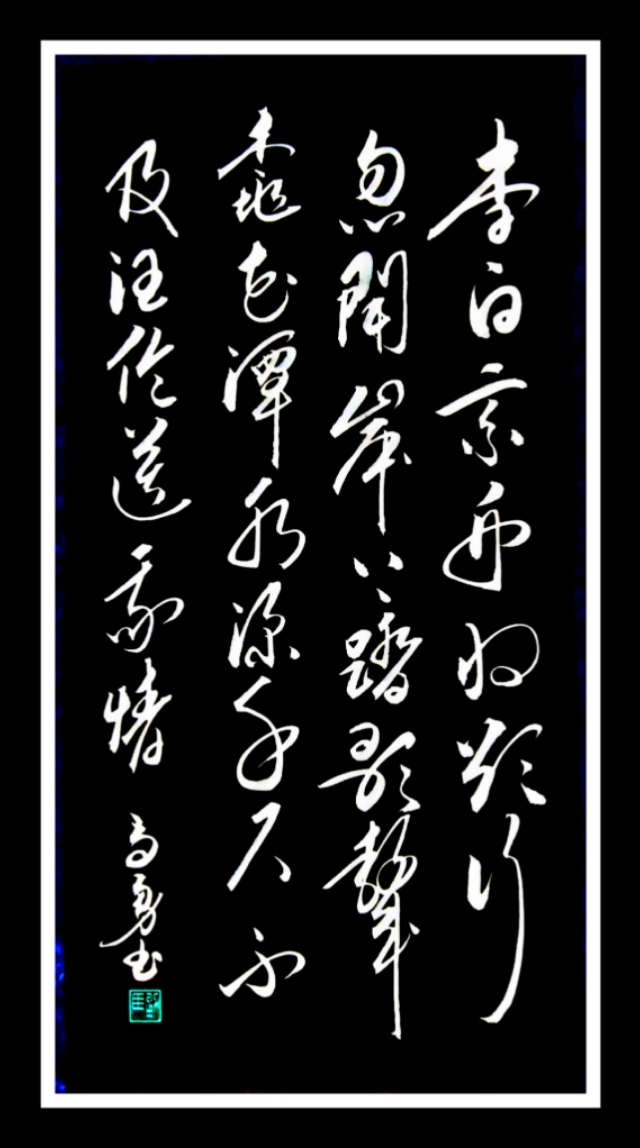 李白乘舟将欲行
忽聞岸上踏歌聲
桃花潭水深千尺不
及汪倫送我情
高勇书